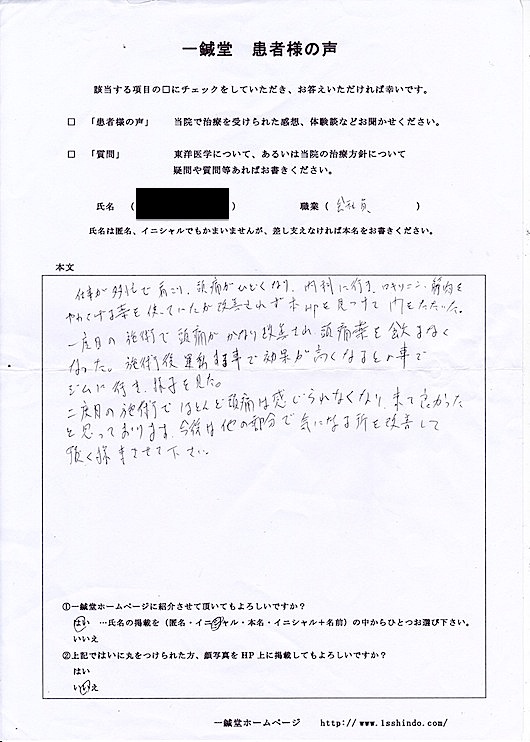 一鍼堂 患者様の声
該当する項目の□にチェックをしていただき、お答えいただければ幸いです。
□ 「患者様の声」 当院で治療を受けられた感想、体験談などお聞かせください。
□ 「質問」 東洋医学について、あるいは当院の治療方針について
疑問や質問等あればお書きください。
氏名 ( ) 職業 ( 会社員 )
氏名は匿名、イニシャルでもかまいませんが、差し支えなければ本名をお書きください。
本文
仕事が多忙で肩こり、頭痛がひどくなり、内科に行き、ロキソニン、筋肉を
やわらげる薬を使っていたが改善されず HPを見つけて 門をたたいた。
一度目の施術で頭痛がかなり改善され、頭痛薬を飲まなく
なった。施術後運動する事で効果が高くなるとの事で
ジムに行き、様子を見た。
二度目の施術でほとんど頭痛は感じられなくなり、来て良かった
と思っております。今後は他の部分で気になる所を改善して
頂く様 させて下さい。
①一鍼堂ホームページに紹介させて頂いてもよろしいですか?
はい …氏名の掲載を(匿名・イニシャル・本名・イニシャル+名前)の中からひとつお選び下さい。
いいえ
②上記ではいに丸をつけられた方、顔写真をHP上に掲載してもよろしいですか?
はい
いいえ
一鍼堂ホームページ http://www.1sshindo.com/